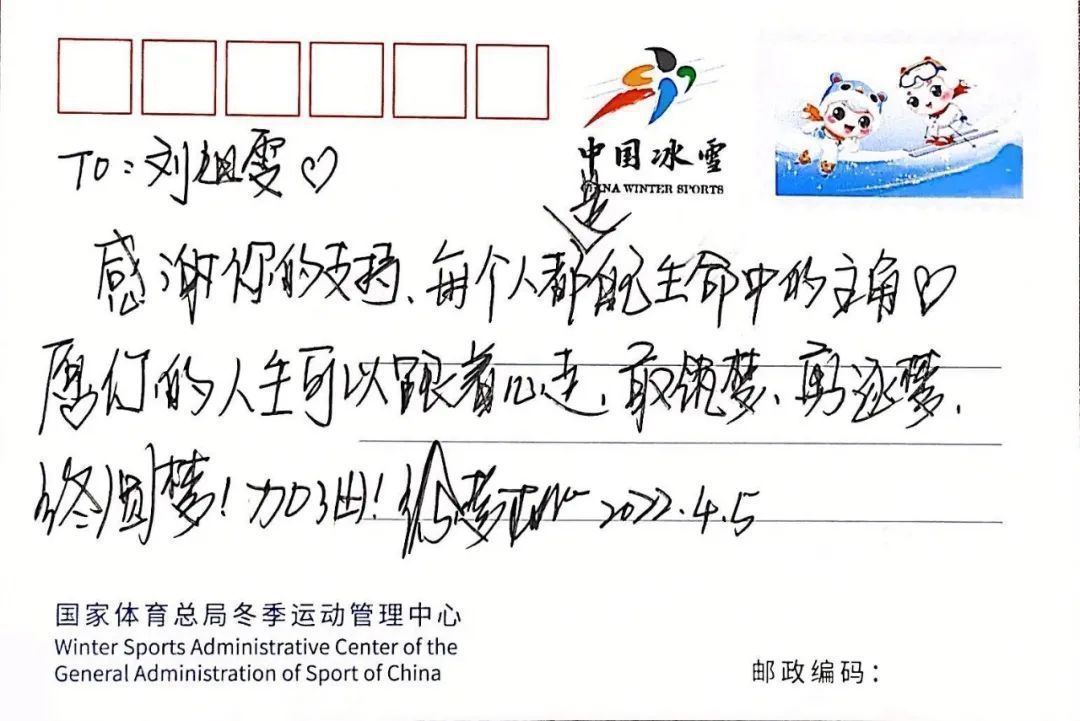 中国冰雪
CHINA WINTER SPORTS
TO:刘祖雯♡
感谢你的支持、每个人都是自己生命中的主角♡
愿你的人生可以跟着心走,敢筑梦、勇逐梦,
终圆梦!加油!徐梦桃 2022.4.5
国家体育总局冬季运动管理中心
Winter Sports Administrative Center of the
General Administration of Sport of China
邮政编码: